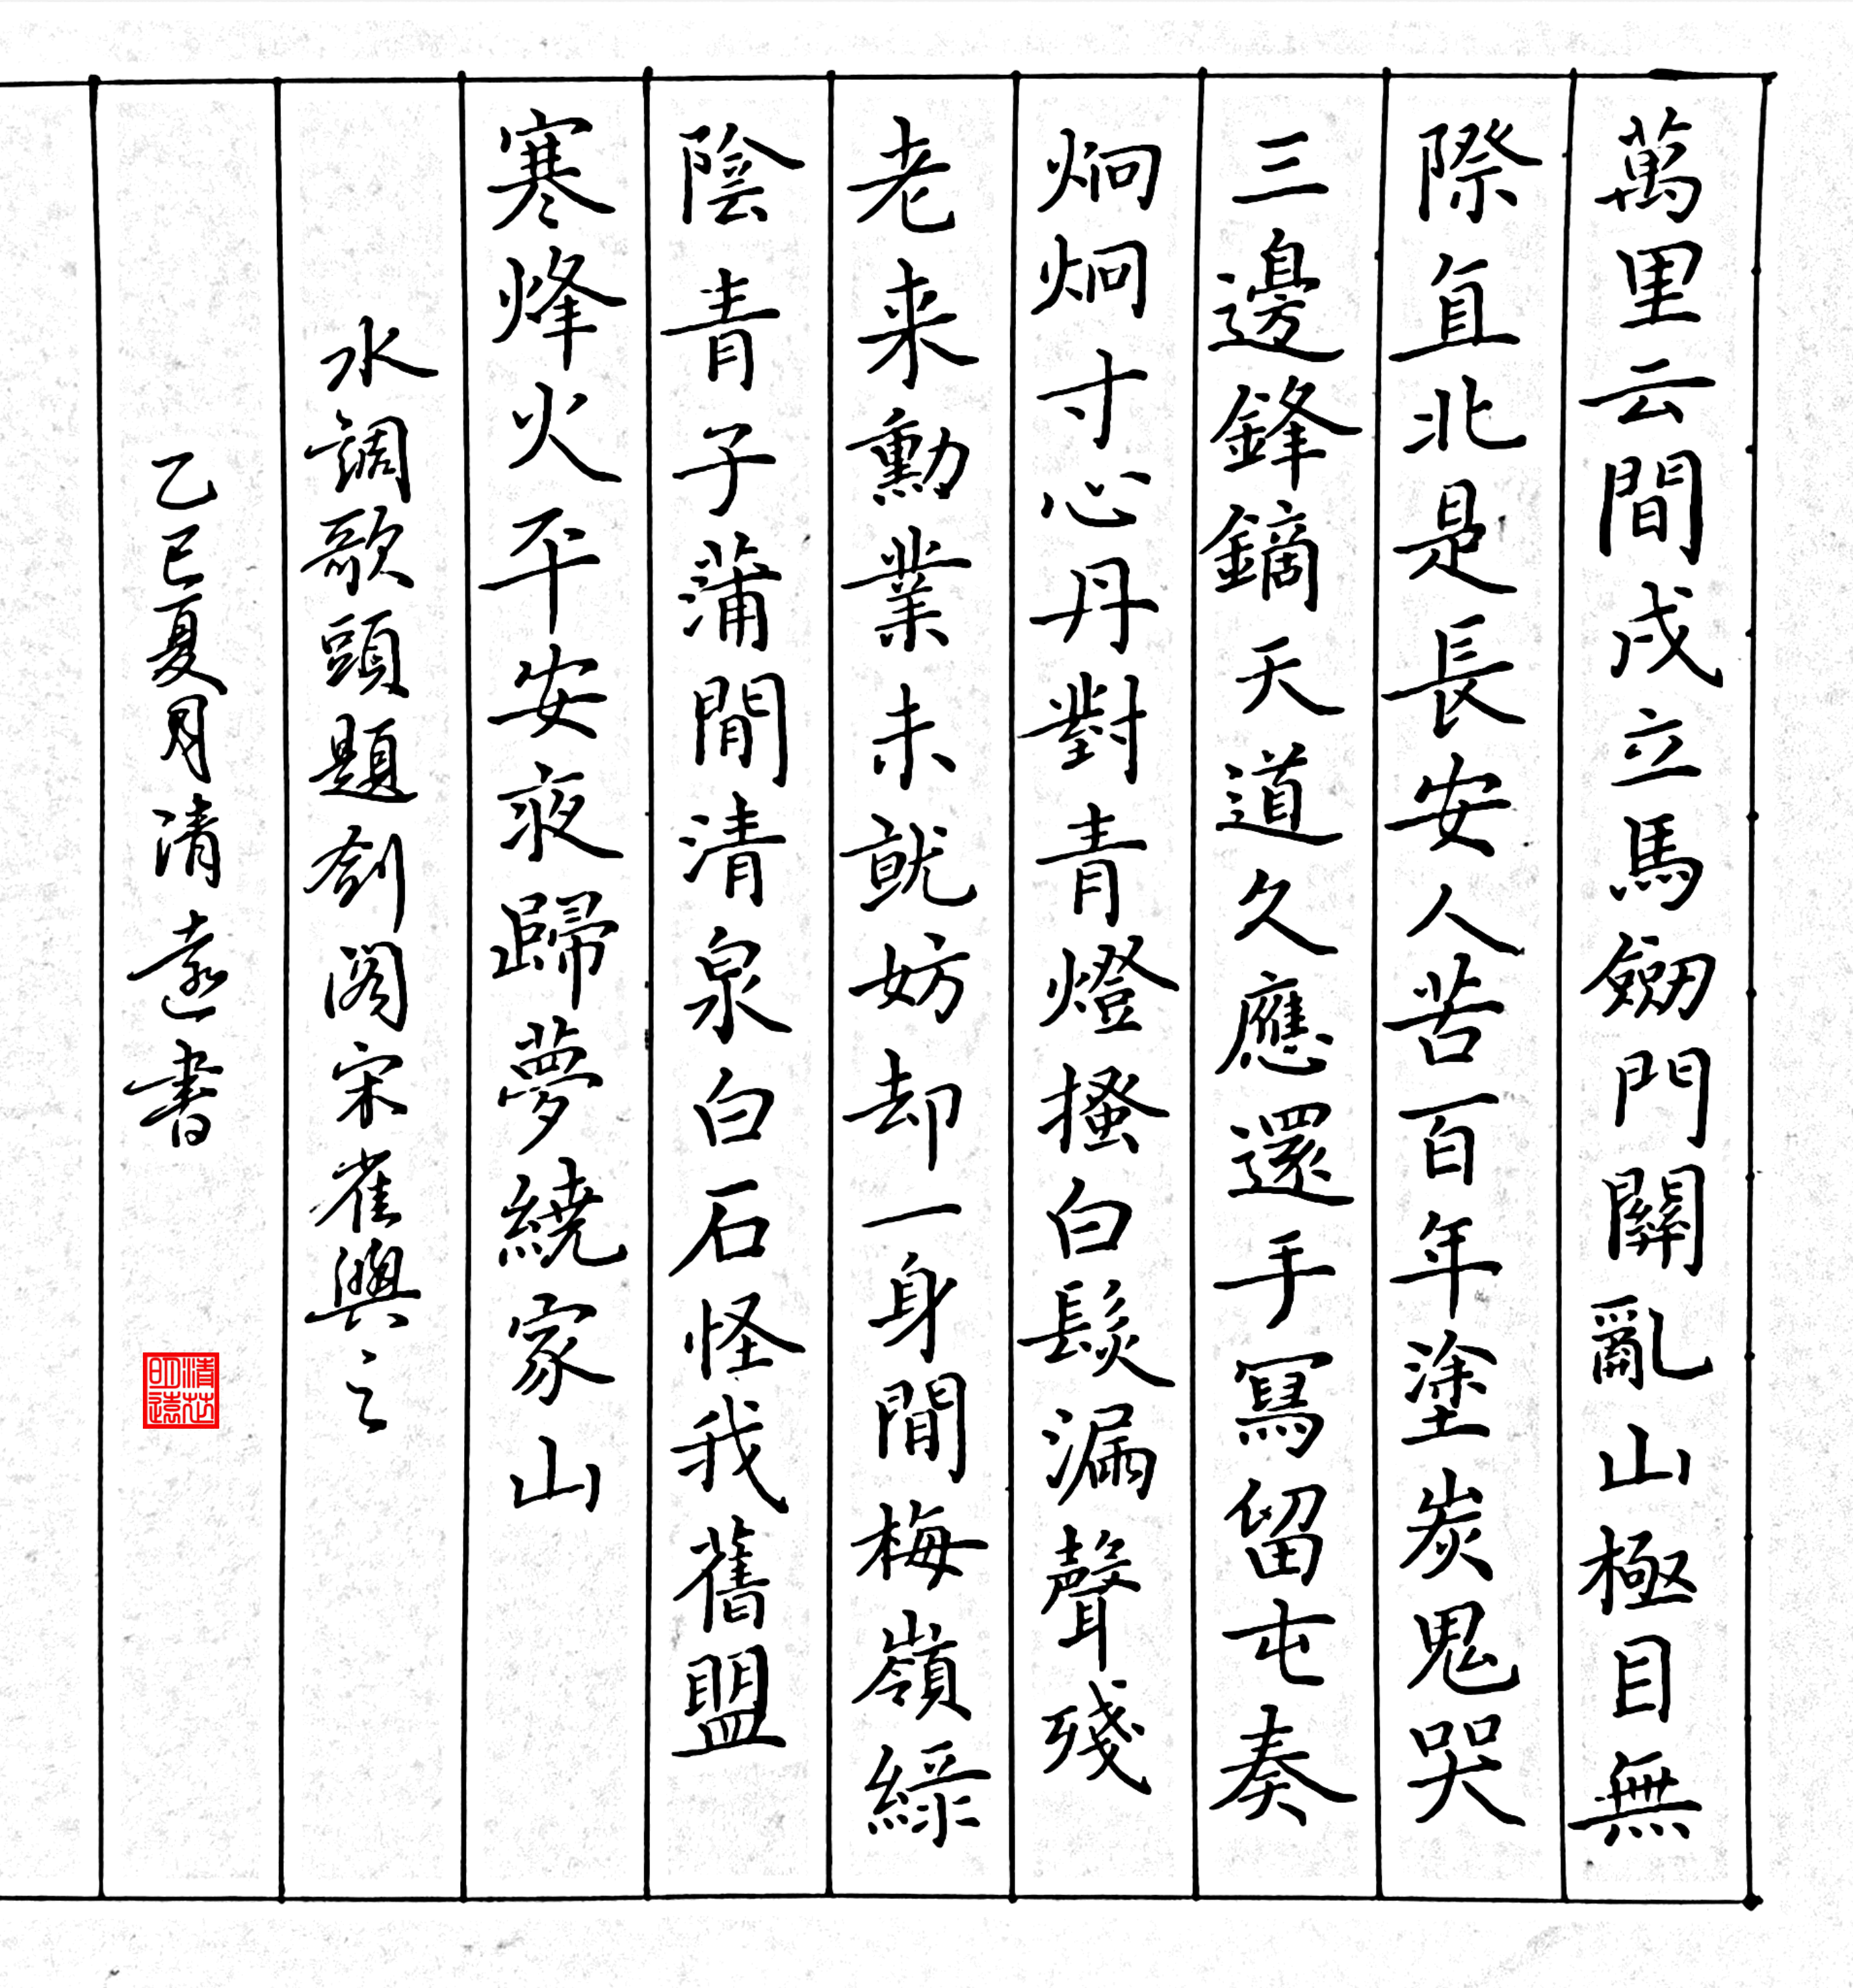 萬里云間戍立馬劒門關亂山極目無
際直北是長安人苦百年塗炭鬼哭
三邊鋒鏑天道久應還手寫留屯奏
炯炯寸心丹對青燈搔白鬢漏聲殘
老来勳業未就妨却一身閒梅嶺綠
陰青子蒲間清泉白石怪我舊盟
寒烽火平安夜歸夢繞家山
水調歌頭題劍阁宋崔與之
乙巳夏月清遠書
清芯明遠